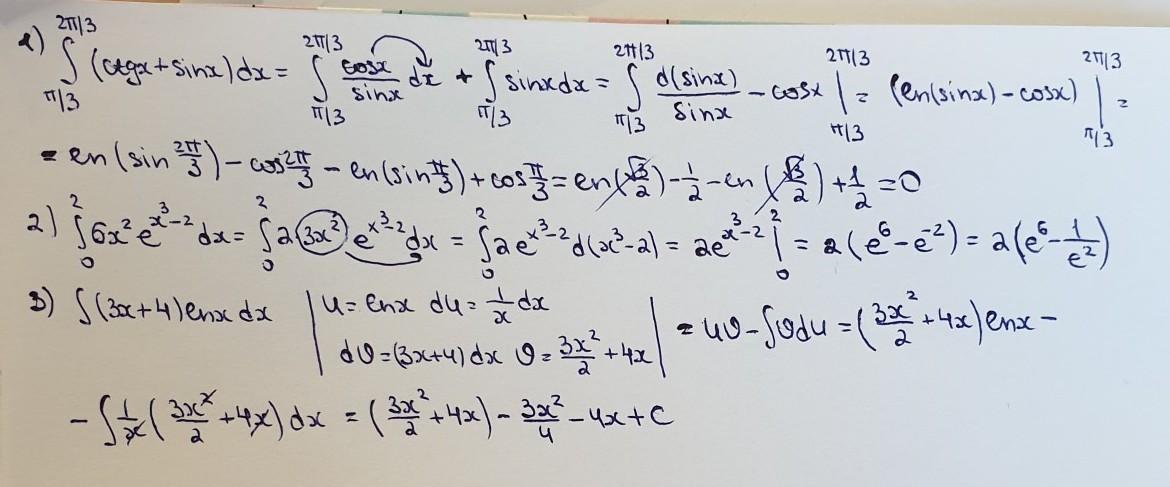 1) ∫_{π/3}^{2π/3} (ctgx + sinx) dx = ∫_{π/3}^{2π/3} cosx/sinx dx + ∫_{π/3}^{2π/3} sinx dx = ∫_{π/3}^{2π/3} d(sinx)/sinx - cosx |_{π/3}^{2π/3} = (ln(sinx) - cosx) |_{π/3}^{2π/3} =
= ln(sin 2π/3) - cos 2π/3 - ln(sin π/3) + cos π/3 = ln(√3/2) - 1/2 - ln(√3/2) + 1/2 = 0
2) ∫_0^2 6x² e^{x³-2} dx = ∫_0^2 2(3x²) e^{x³-2} dx = ∫_0^2 2e^{x³-2} d(x³-2) = 2e^{x³-2} |_0^2 = 2(e⁶ - e⁻²) = 2(e⁶ - 1/e²)
3) ∫(3x+4)lnx dx | u = lnx du = 1/x dx
dv = (3x+4) dx v = 3x²/2 + 4x | = uv - ∫vdu = (3x²/2 + 4x)lnx -
- ∫ 1/x (3x²/2 + 4x) dx = (3x²/2 + 4x) - 3x²/4 - 4x + C